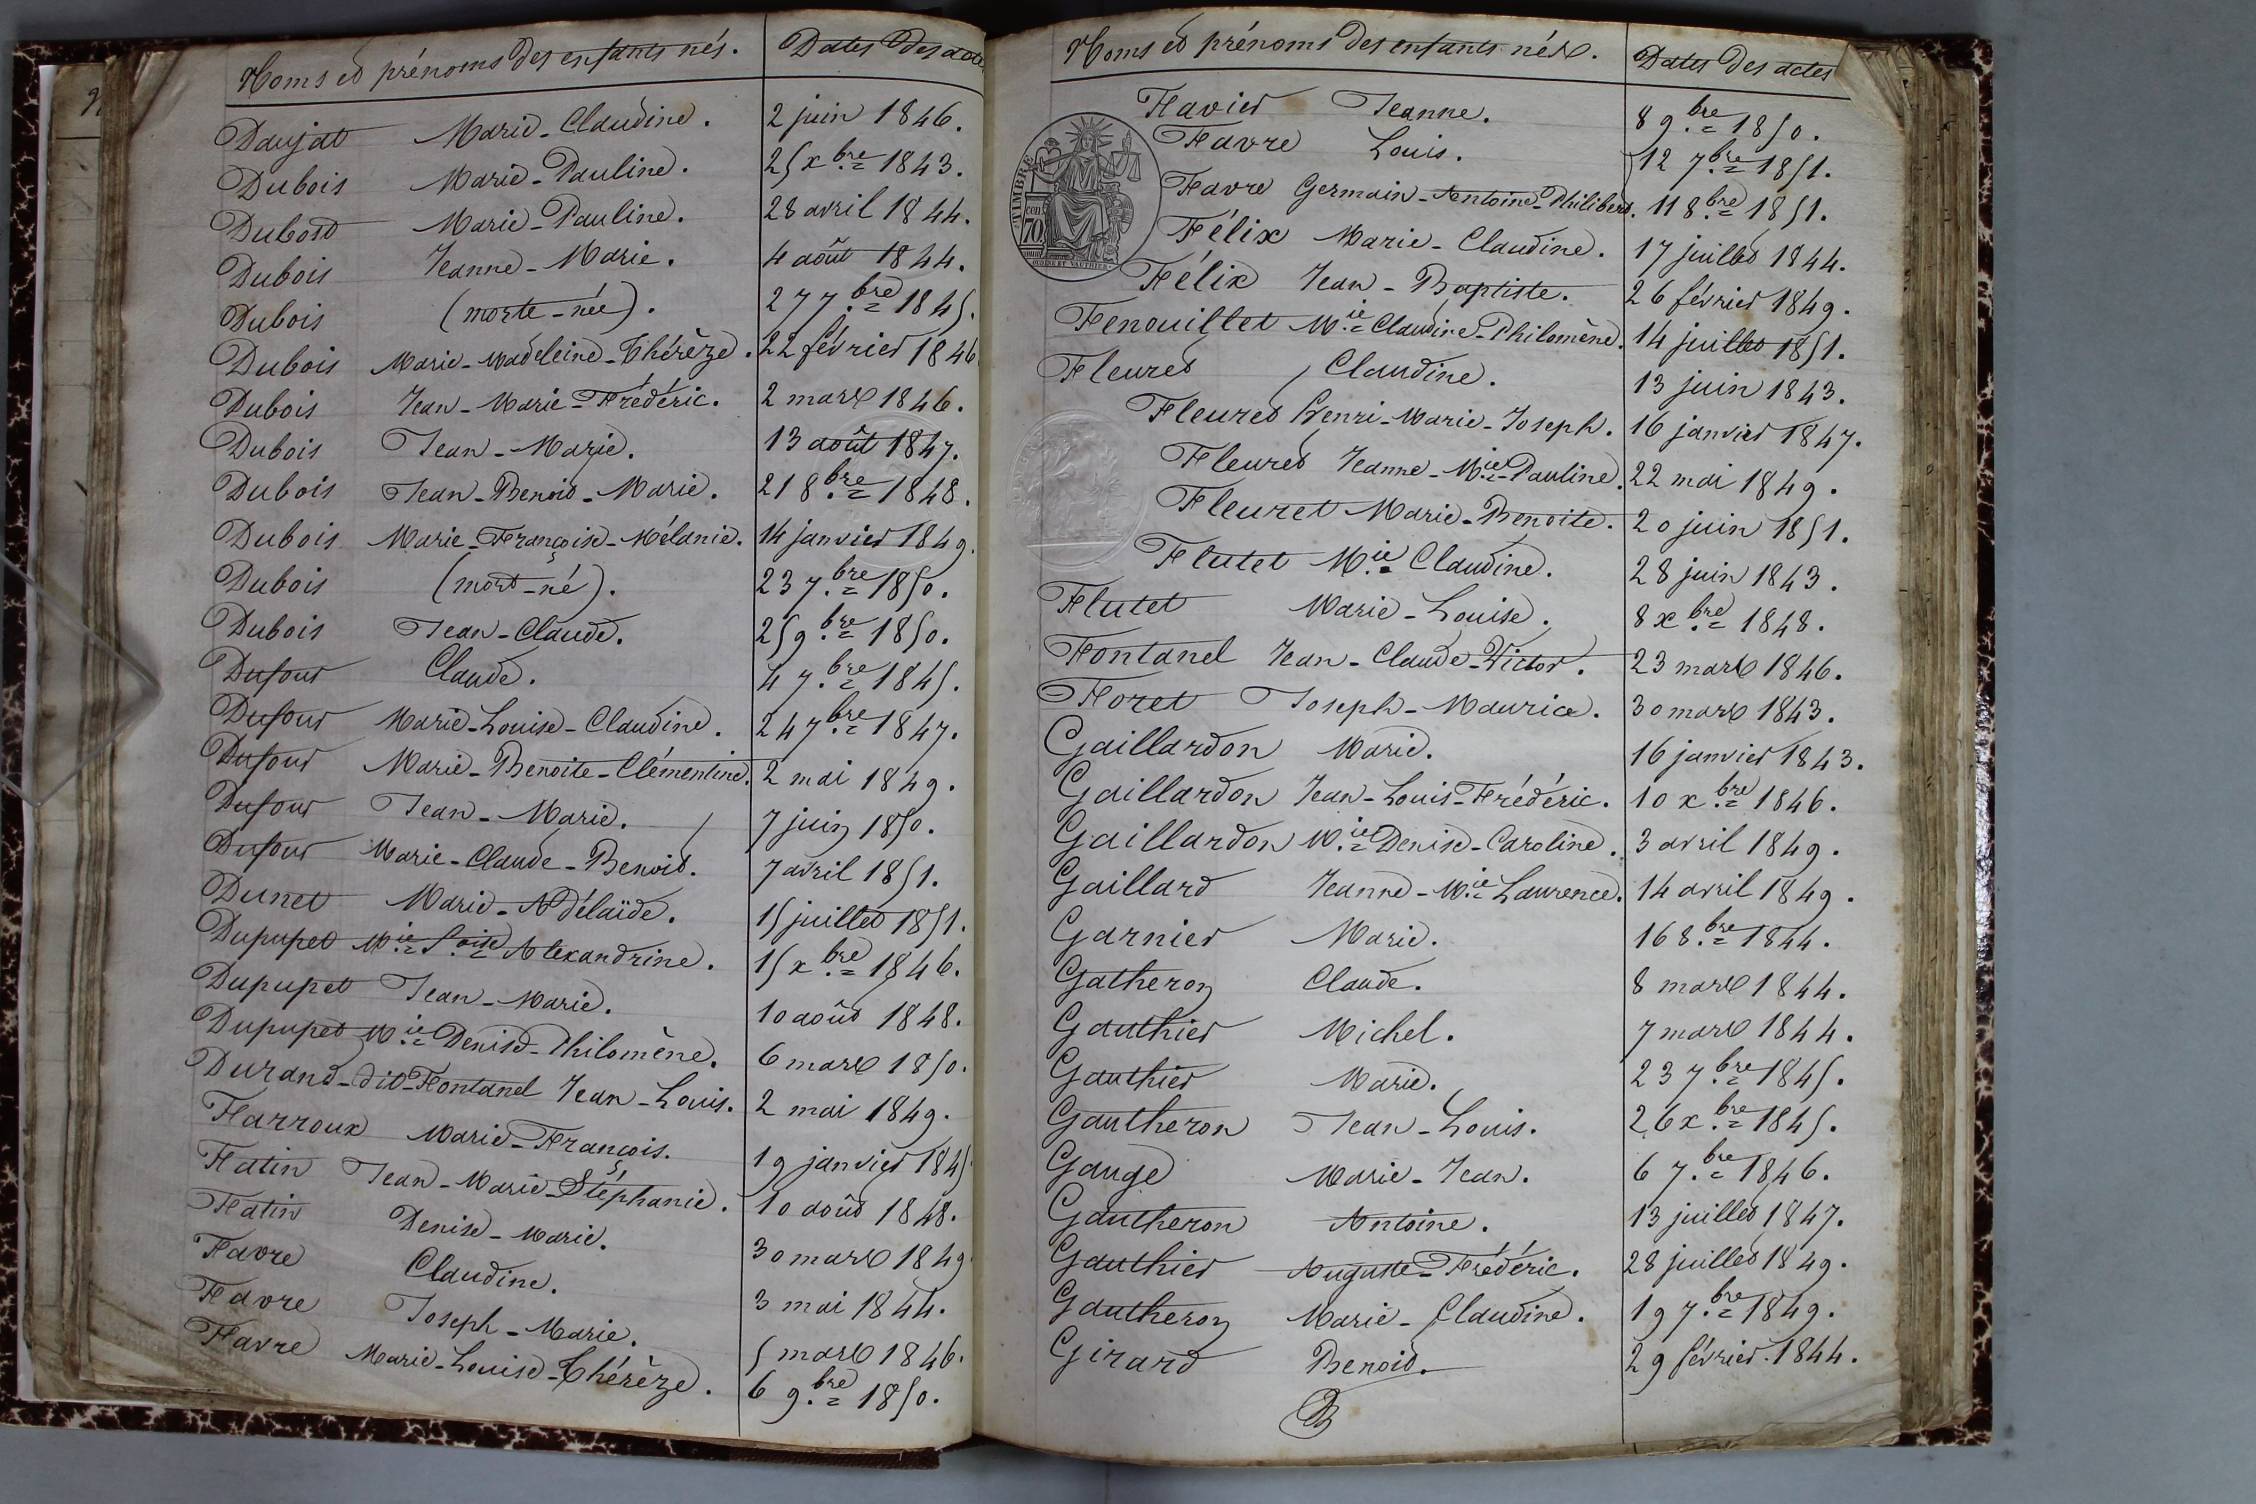 Noms et prénoms des enfants nés. Dates des actes
Daujat Marie-Claudine. 2 juin 1846.
Dubois Marie-Pauline. 25 xbre 1843.
Dubost Marie-Pauline. 28 avril 1844.
Dubois Jeanne-Marie. 4 août 1844.
Dubois (morte-née). 27 7.bre 1845.
Dubois Marie-Madeleine-Thérèze. 22 février 1846
Dubois Jean-Marie-Frédéric. 2 mars 1846.
Dubois Jean-Marie. 13 août 1847.
Dubois Jean-Benoit-Marie. 21 8.bre 1848.
Dubois Marie-Françoise-Mélanie. 14 janvier 1849.
Dubois (mort-né). 23 7.bre 1850.
Dubois Jean-Claude. 25 9.bre 1850.
Dufour Claude. 4 7.bre 1845.
Dufour Marie-Louise-Claudine. 24 7bre 1847.
Dufour Marie-Benoite-Clémentine. 2 mai 1849.
Dufour Jean-Marie. 7 juin 1850.
Dufour Marie-Claude-Benoit. 7 avril 1851.
Dunet Marie-Adélaïde. 15 juillet 1851.
Dupupet Mie Loise Alexandrine. 15 xbre 1846.
Dupupet Jean-Marie. 10 août 1848.
Dupupet Mie Denise-Philomène. 6 mars 1850.
Durand-dit-Fontanel Jean-Louis. 2 mai 1849.
Farroux Marie-François. 19 janvier 1845
Fatin Jean-Marie-Stéphanie. 10 août 1848.
Fatin Denise-Marie. 30 mars 1849
Favre Claudine. 3 mai 1844.
Favre Joseph-Marie. 5 mars 1846.
Favre Marie-Louise-Thérèze. 6 9.bre 1850.
Noms et prénoms des enfants nés. Dates des actes
Favier Jeanne. 8 9.bre 1850.
Favre Louis. 12 7bre 1851.
TIMBRE
Favre Germain-Antoine-Philibert. 11 8bre 1851.
70
Félix Marie-Claudine. 17 juillet 1844.
Félix Jean-Baptiste. 26 février 1849.
Fenouillet Mie Claudine-Philomène. 14 juillet 1851.
Fleuret Claudine. 13 juin 1843.
Fleuret Henri-Marie-Joseph. 16 janvier 1847.
Fleuret Jeanne-Mie-Pauline. 22 mai 1849.
Fleuret Marie-Benoite. 20 juin 1851.
Flutet Mie Claudine. 28 juin 1843.
Flutet Marie-Louise. 8 xbre 1848.
Fontanel Jean-Claude-Victor. 23 mars 1846.
Foret Joseph-Maurice. 30 mars 1843.
Gaillardon Marie. 16 janvier 1843.
Gaillardon Jean-Louis-Frédéric. 10 xbre 1846.
Gaillardon Mie Denise-Caroline. 3 avril 1849.
Gaillard Jeanne-Mie Laurence. 14 avril 1849.
Garnier Marie. 16 8.bre 1844.
Gatheron Claude. 8 mars 1844.
Gauthier Michel. 7 mars 1844.
Gauthier Marie. 23 7.bre 1845.
Gautheron Jean-Louis. 26 x.bre 1845.
Gauge Marie-Jean. 6 7.bre 1846.
Gautheron Antoine. 13 juillet 1847.
Gauthier Auguste-Frédéric. 28 juillet 1849.
Gautheron Marie-Claudine. 19 7.bre 1849.
Girard Benoit. 29 février 1844.